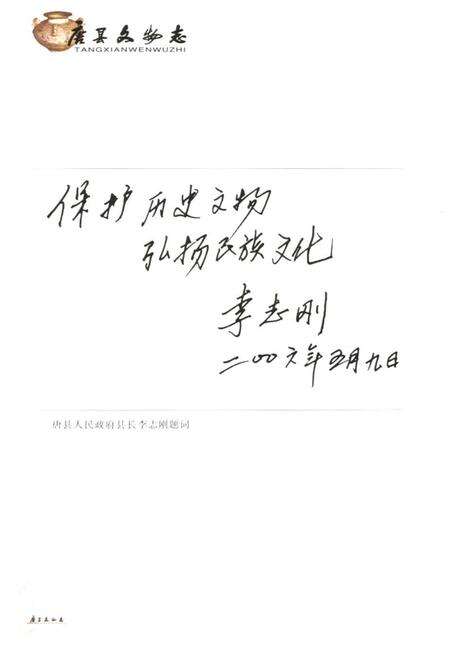 唐县文物志
TANGXIANWENWUZHI
保护历史文物
弘扬民族文化
李志刚
二〇〇六年五月九日
唐县人民政府县长李志刚题词
唐县文物志